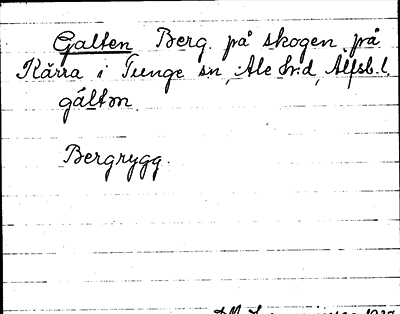 Galten Berg. på skogen på
Kärra i Tunge sn, Ale hrd, Älfsb. l.
gáltən
Bergrygg.